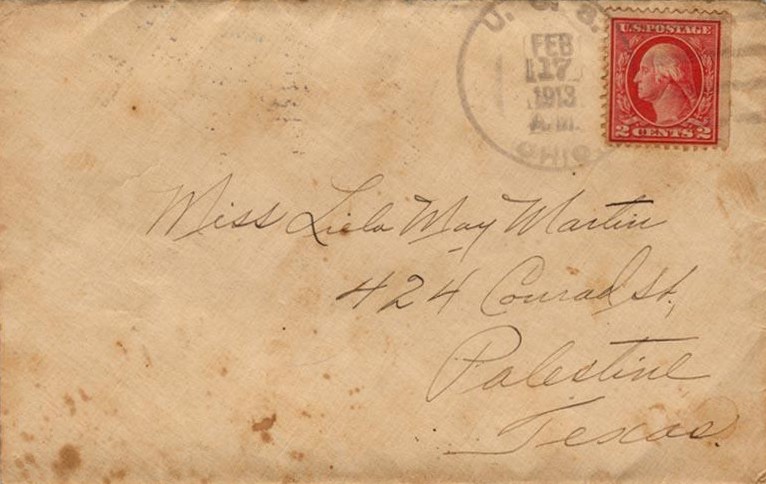 U. S. S.
FEB
17
1913
A.M.
OHIO
U.S. POSTAGE
2 CENTS 2
Miss Liela May Martin
424 Conrad St,
Palestine
Texas.